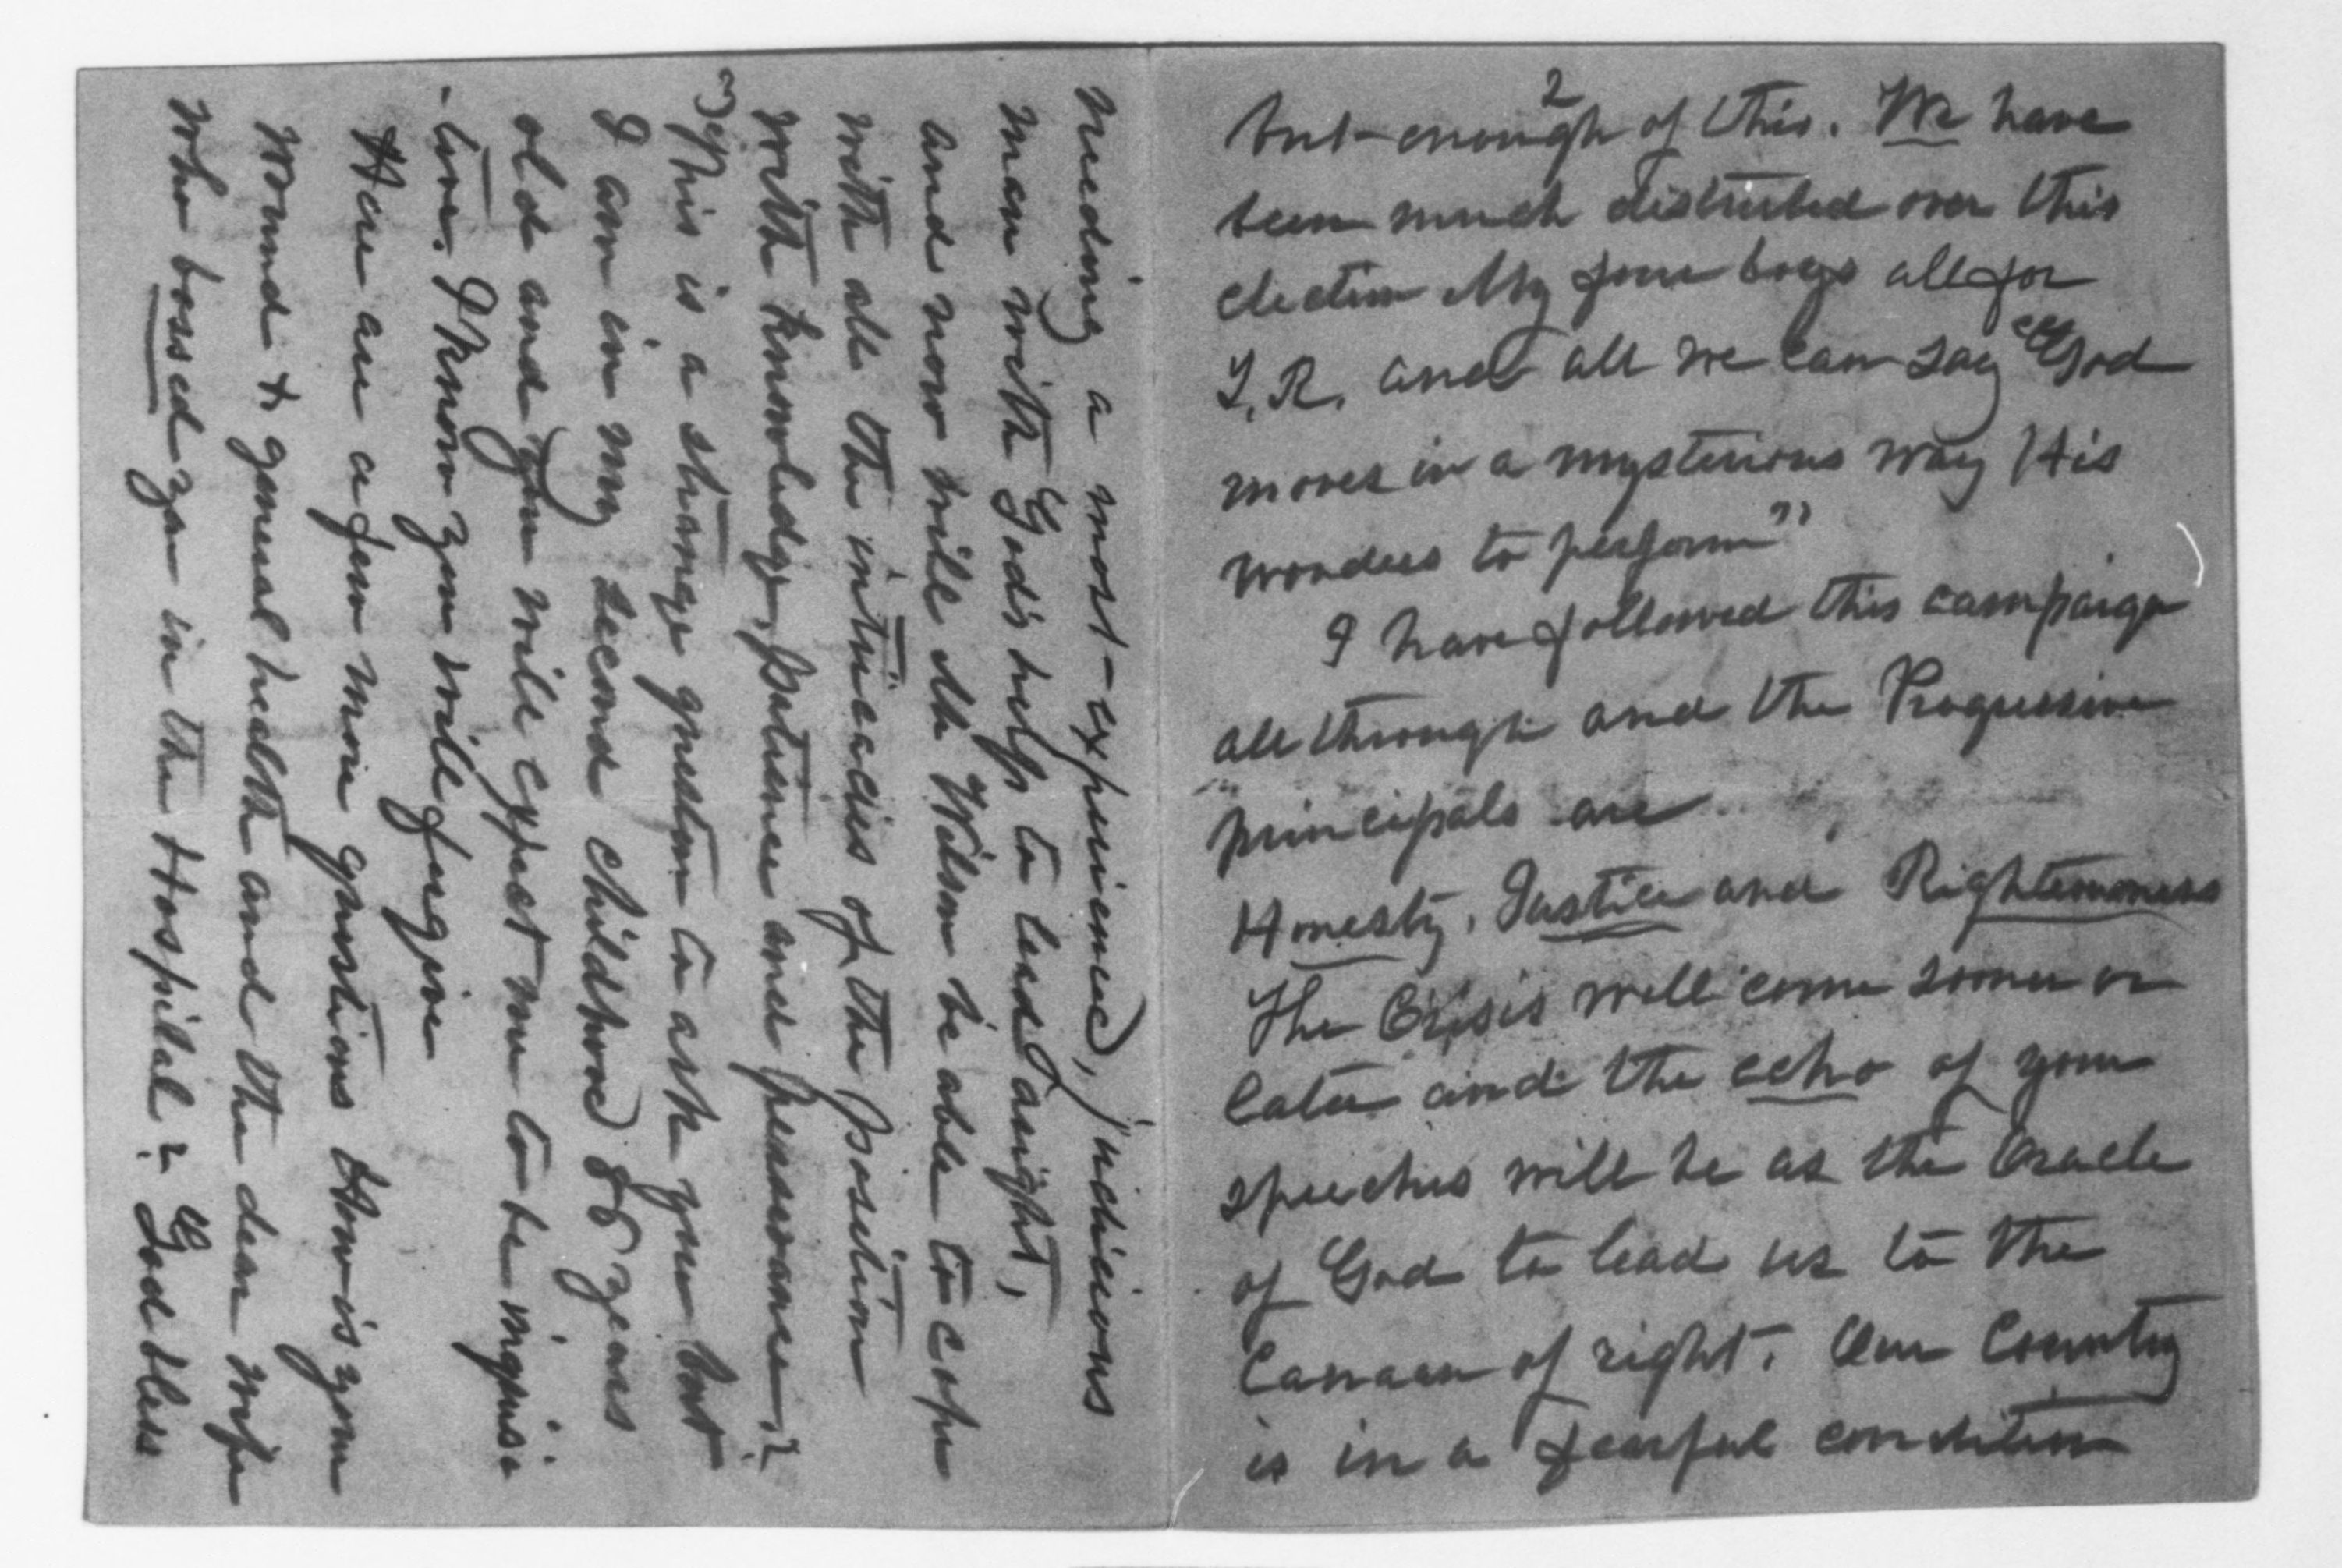 2
but enough of this. We have
been much distrubed over this
election My four boys all for
T.R. and all we can say "God
moves in a mysterious way His
wonders to perform"
I have followed this campaign
all through and the Progressive
principals are
Honesty, Justice and Righteousness
The Crisis will come sooner or
later and the echo of your
speeches will be as the Oracle
of God to lead us to the
Canaan of right. Our Country
is in a fearful condition
3
needing a most experienced, judicious
man with God's help to lead aright,
and now will Mr Wilson be able to cope
with all the intricacies of the position
with knowledge, patience and perseverance?
This is a strange question to ask you but
I am in my second childhood 86 years
old and you will expect me to be inquisi
-tive. I know you will forgive
Here are a few more questions How is your
wound & general health and the dear wife
who bossed you in the Hospital? God bless